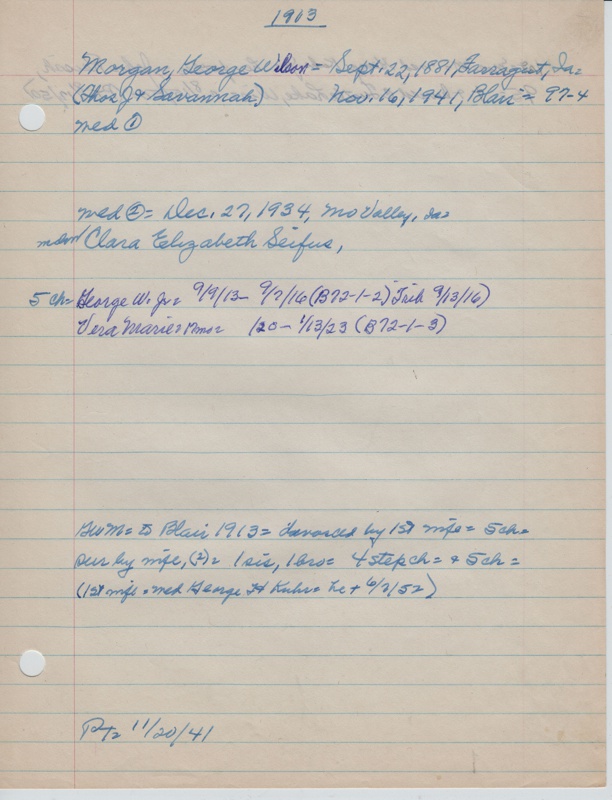 1913
Morgan, George Wilson = Sept. 22, 1881, Farragut, Ia=
(Thos J & Savannah) Nov. 16, 1941, Blair = 97-4
med ①
med ② = Dec. 27, 1934, Mo Valley, Ia=
Clara Elizabeth Seifus,
5 ch= George W. Jr= 9/9/13 - 9/7/16 (B72-1-2) Trib 9/13/16)
Vera Marie= 17mos= /20 - 1/13/23 (B72-1-3)
Geo M= to Blair 1913= divorced by 1st wife= 5ch=
sur by wife, (2)= 1 sis, 1 bro= 4 stepch= & 5 ch=
(1st wife = med George H Kuhr= he + 6/2/52)
11/20/41